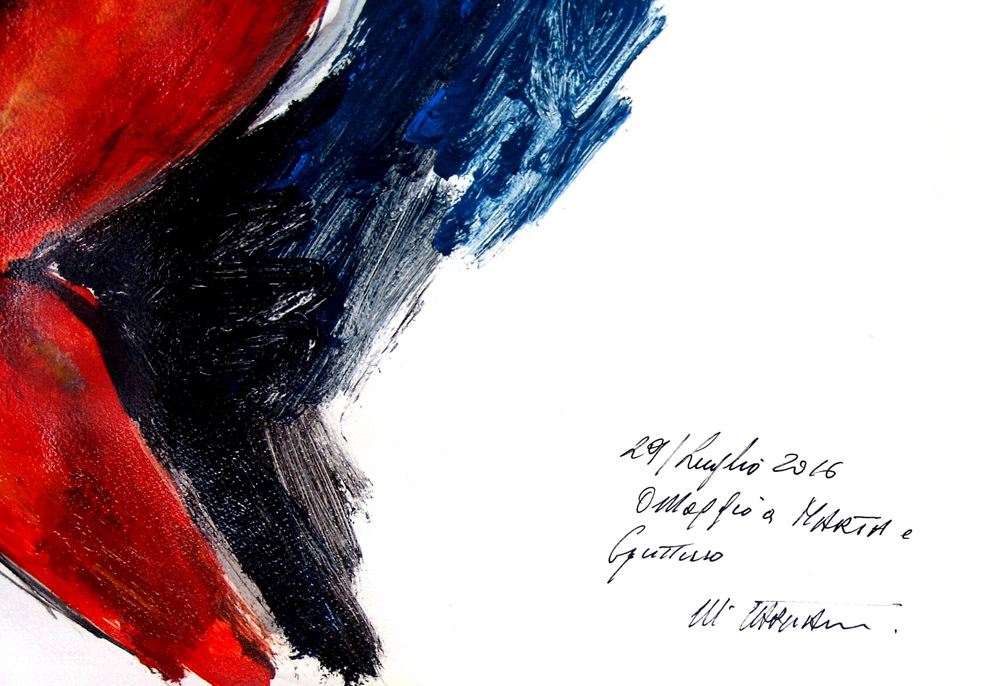 29/Luglio 2016
Omaggio a MARTA e
Guttuso
M.